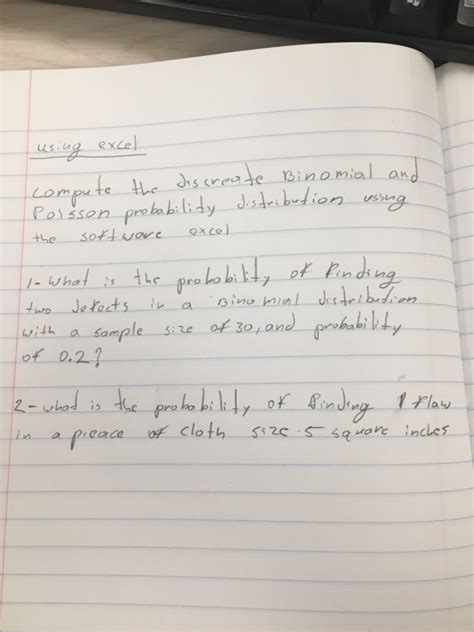 using excel
compute the discreate Binomial and
Poisson probability distribution using
the software excel
1- what is the probability of finding
two defects in a Binomial distribution
with a sample size of 30, and probability
of 0.2?
2- what is the probability of finding 1 flaw
in a pieace of cloth size .5 square inches